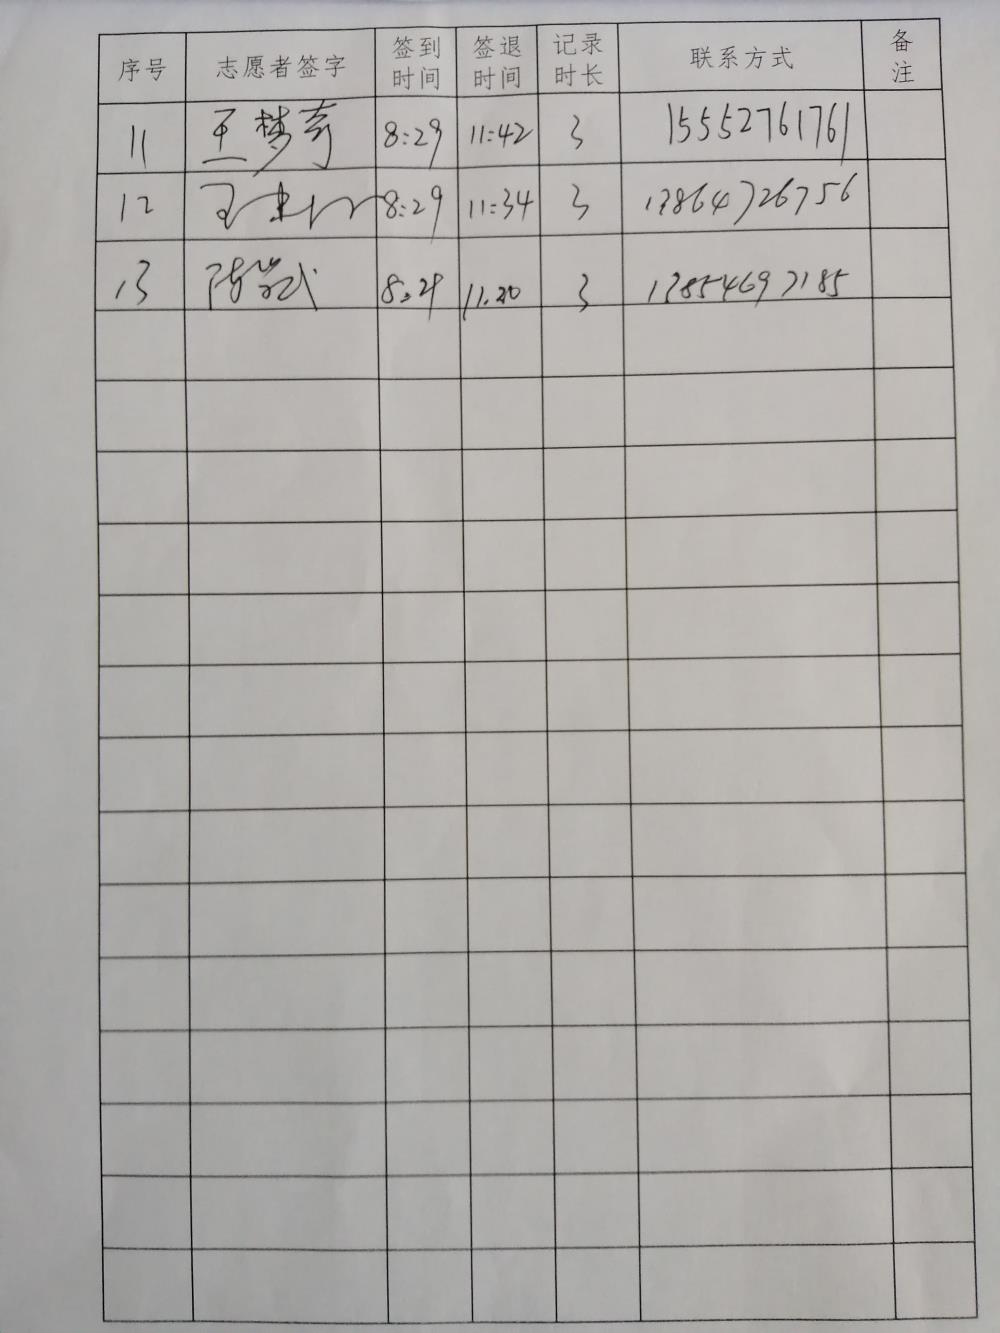 序号 志愿者签字 签到时间 签退时间 记录时长 联系方式 备注
11 王梦奇 8:29 11:42 3 15552761761
12 王 8:29 11:34 3 13864726756
13 陈 8:29 11.20 3 13854697185